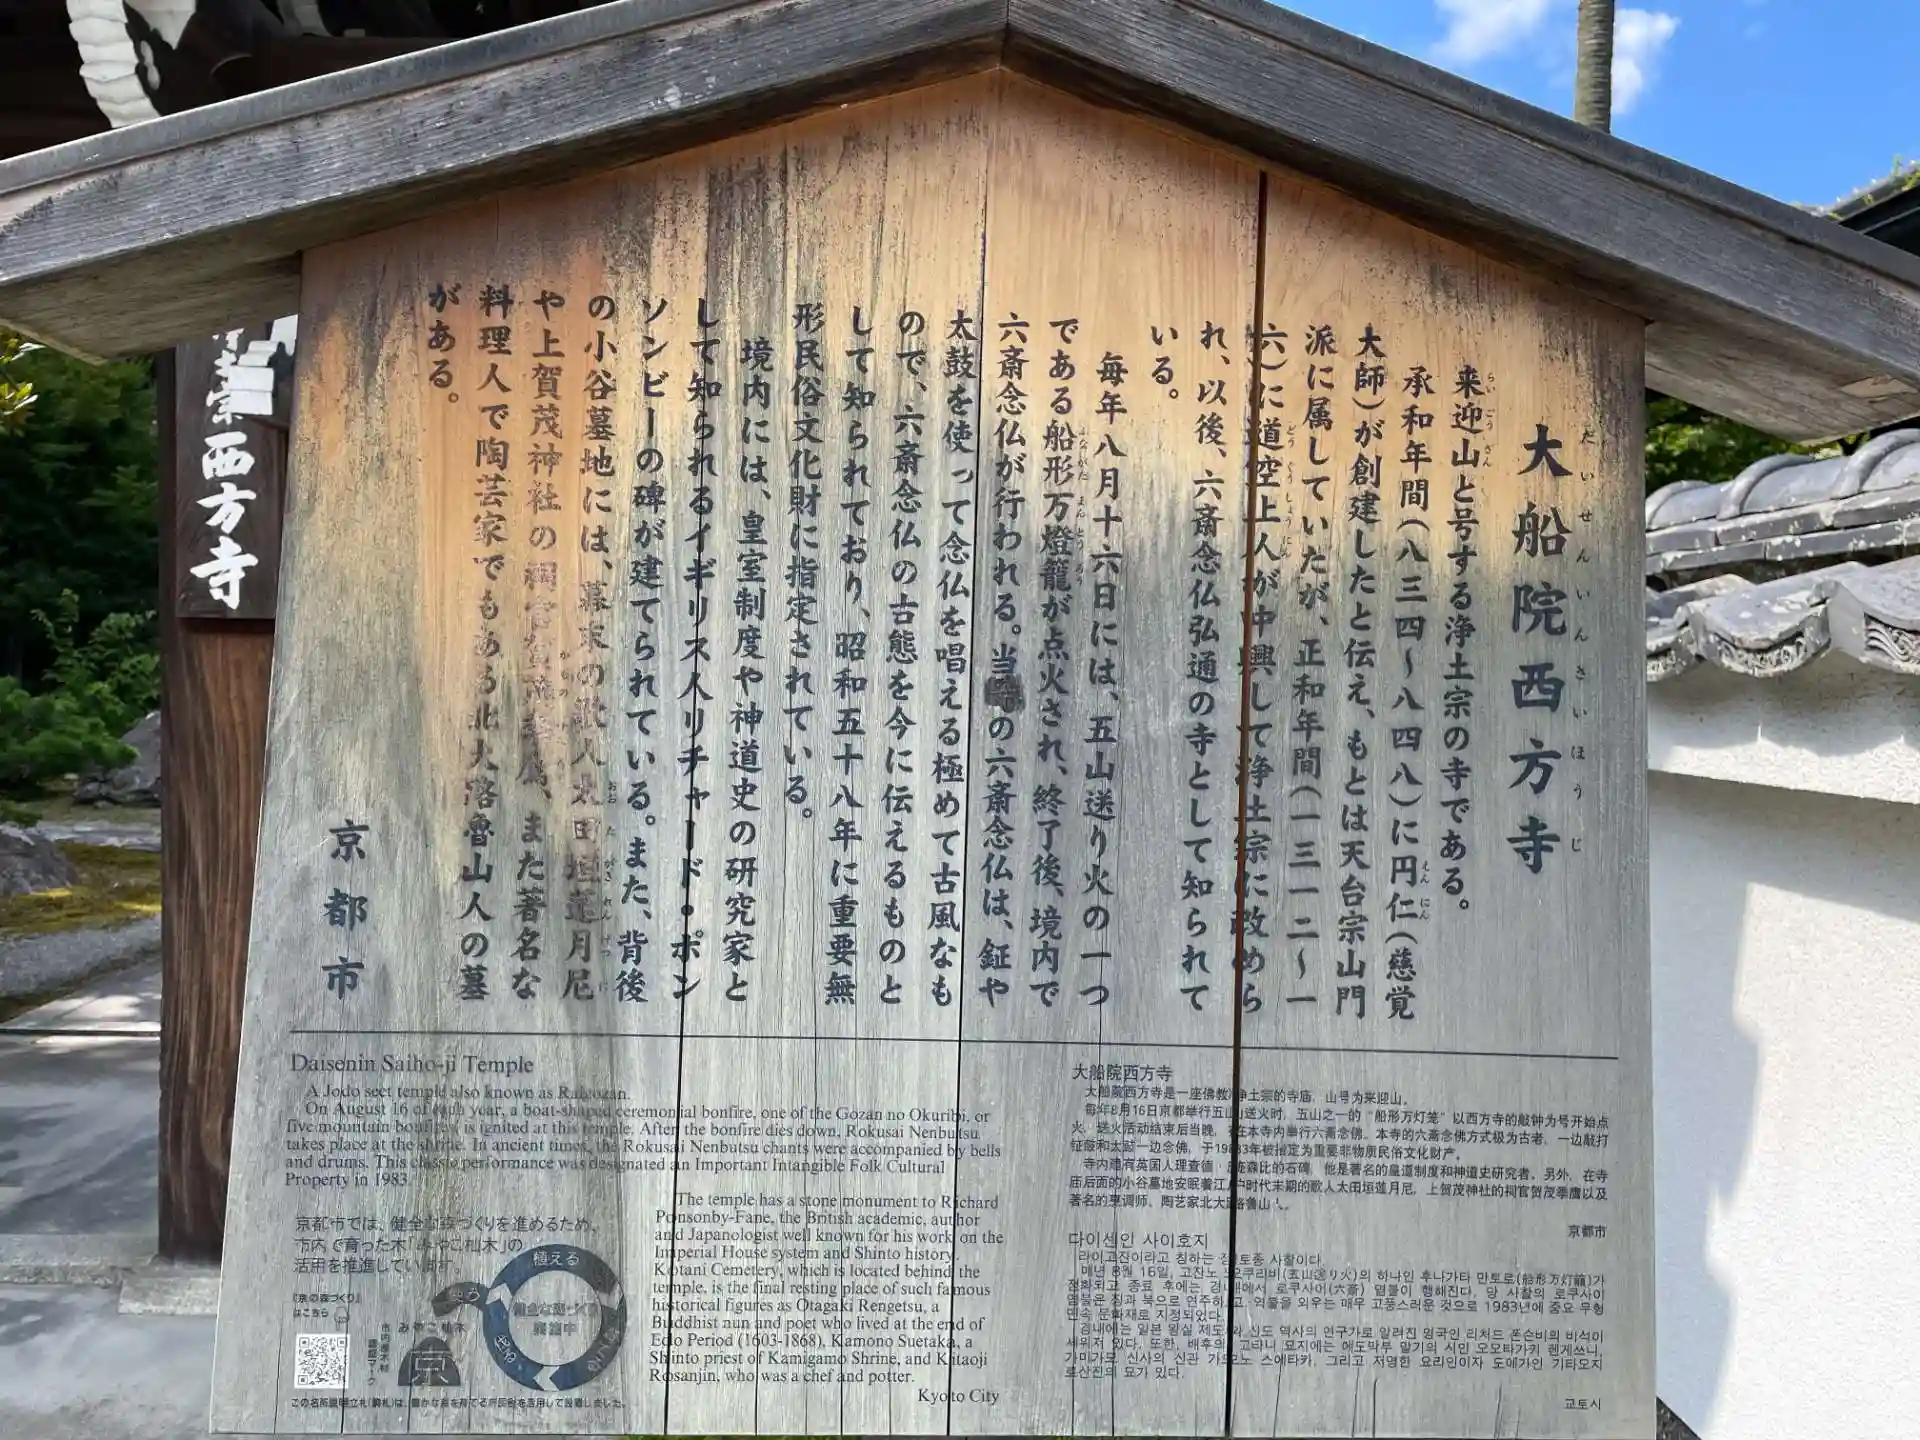 大船院西方寺
だいせんいんさいほうじ
来迎山と号する浄土宗の寺である。
承和年間(八三四〜八四八)に円仁(慈覚
大師)が創建したと伝え、もとは天台宗山門
派に属していたが、正和年間(一三一二〜一
六)に道空上人が中興して浄土宗に改めら
れ、以後、六斎念仏弘通の寺として知られて
いる。
毎年八月十六日には、五山送り火の一つ
である船形万燈籠が点火され、終了後、境内で
六斎念仏が行われる。当の六斎念仏は、鉦や
太鼓を使って念仏を唱える極めて古風なも
ので、六斎念仏の古態を今に伝えるものと
して知られており、昭和五十八年に重要無
形民俗文化財に指定されている。
境内には、皇室制度や神道史の研究家と
して知られるイギリス人リチャード・ポン
ソンビーの碑が建てられている。また、背後
の小谷墓地には、幕末の歌人太田垣蓮月尼
や上賀茂神社の祠官賀茂季鷹、また著名な
料理人で陶芸家でもある北大路魯山人の墓
がある。
京都市
西方寺
Daisenin Saiho-ji Temple
A Jodo sect temple also known as Raigozan.
On August 16 of each year, a boat-shaped ceremonial bonfire, one of the Gozan no Okuribi, or
five mountain bonfires, is ignited at this temple. After the bonfire dies down, Rokusai Nenbutsu
takes place at the shrine. In ancient times, the Rokusai Nenbutsu chants were accompanied by bells
and drums. This classic performance was designated an Important Intangible Folk Cultural
Property in 1983.
The temple has a stone monument to Richard
Ponsonby-Fane, the British academic, author
and Japanologist well known for his work on the
Imperial House system and Shinto history.
Kotani Cemetery, which is located behind the
temple, is the final resting place of such famous
historical figures as Otagaki Rengetsu, a
Buddhist nun and poet who lived at the end of
Edo Period (1603-1868), Kamono Suetaka, a
Shinto priest of Kamigamo Shrine, and Kitaoji
Rosanjin, who was a chef and potter.
Kyoto City
京都市では、健全な森づくりを進めるため、
市内で育った木「みやこ杣木」の
活用を推進しています。
『京の森づくり』
はこちら
みやこ杣木
市内産木材
認証マーク
京
植える
健全な森づくり
実施中
大船院西方寺
大船院西方寺是一座佛教净土宗的寺庙，山号为来迎山。
每年8月16日京都举行五山送火时，五山之一的“船形万灯笼”以西方寺的敲钟为号开始点
火，送火活动结束后当晚，在本寺内举行六斋念佛。本寺的六斋念佛方式极为古老，一边敲打
钲鼓和太鼓一边念佛，于1983年被指定为重要非物质民俗文化财产。
寺内建有英国人理查德·庞森比的石碑，他是著名的皇道制度和神道史研究者。另外，在寺
庙后面的小谷墓地安眠着江户时代末期的歌人太田垣莲月尼，上贺茂神社的祠官贺茂季鹰以及
著名的烹调师、陶艺家北大路鲁山人。
京都市
다이센인 사이호지
라이고잔이라고 칭하는 정토종 사찰이다.
매년 8월 16일, 고잔노 오쿠리비(五山送り火)의 하나인 후나가타 만토로(船形万灯籠)가
점화되고 종료 후에는 경내에서 로쿠사이(六斎) 염불이 행해진다. 당 사찰의 로쿠사이
염불은 징과 북으로 연주하고, 염불을 외우는 매우 고풍스러운 것으로 1983년에 중요 무형
민속 문화재로 지정되었다.
경내에는 일본 왕실 제도와 신도 역사의 연구가로 알려진 영국인 리처드 폰슨비의 비석이
세워져 있다. 또한, 배후의 고타니 묘지에는 에도막부 말기의 시인 오오타가키 렌게쓰니,
가미가모 신사의 신관 가모노 스에타카, 그리고 저명한 요리인이자 도예가인 기타오지
로산진의 묘가 있다.
교토시